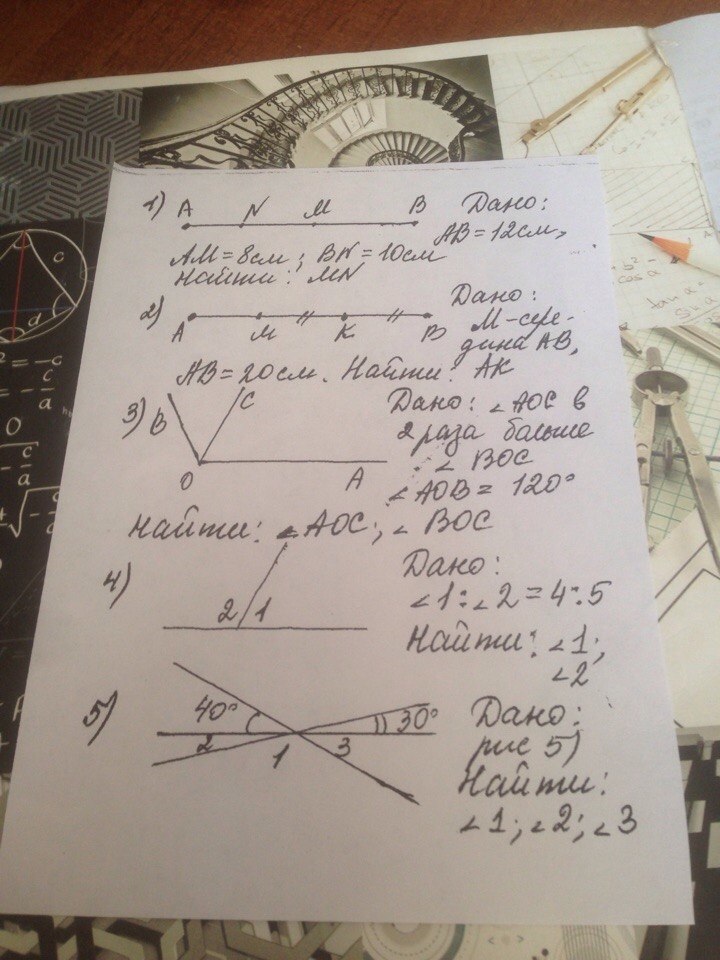 1) A N M B Дано:
AB = 12см,
AM = 8см; BN = 10см
Найти: MN
2) A M K B Дано:
M-сере-
дина AB,
AB = 20см. Найти: AK
3) B C O A Дано: ∠AOC в
2 раза больше
∠ BOC
∠AOB = 120°
Найти: ∠AOC; ∠ BOC
4) 2 1 Дано:
∠1:∠2 = 4:5
Найти: ∠1;
∠2
5) 40° 30° 2 1 3 Дано:
рис 5)
Найти:
∠1; ∠2; ∠3